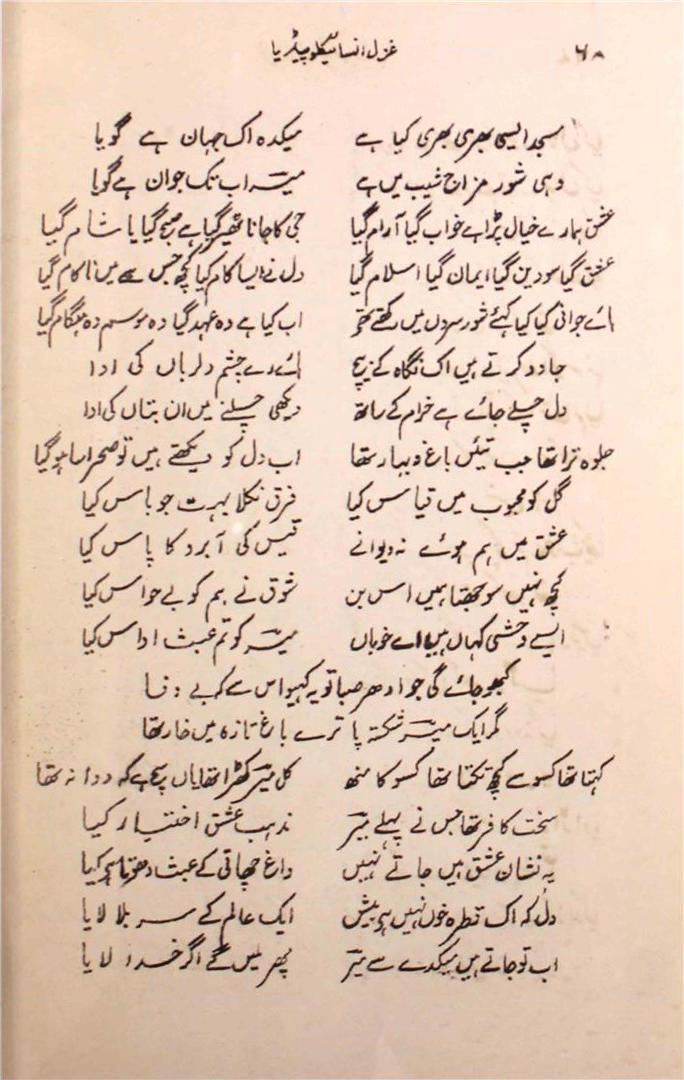 ۶۸ غزل انسائیکلوپیڈیا
مسجد ایسی بھری بھری کیا ہے میکدہ اک جہان ہے گویا
وہی شور مزاج شیب میں ہے میرؔ اب تک جوان ہے گویا
عشق ہمارے خیال پڑا ہے خواب گیا آرام گیا جی کا جانا ٹھیر گیا ہے صبح گیا یا شام گیا
عشق گیا سو دین گیا ایمان گیا اسلام گیا دل نے ایسا کام کیا کچھ جس سے میں ناکام گیا
ہائے جوانی کیا کیا کہئے شور سروں میں رکھتے تھے اب کیا ہے وہ عہد گیا وہ موسم وہ ہنگام گیا
جادو کرتے ہیں اک نگاہ کے بیچ ہائے رے چشم دلبراں کی ادا
دل چلے جائے ہے خرام کے ساتھ دیکھی چلنے میں ان بتاں کی ادا
جلوہ ترا تھا جب تئیں باغ و بہار تھا اب دل کو دیکھتے ہیں تو صحرا سا ہو گیا
گل کو محبوب میں قیاس کیا فرق نکلا بہت جو باس کیا
عشق میں ہم ہوئے نہ دیوانے قیس کی آبرو کا پاس کیا
کچھ نہیں سوجھتا ہمیں اس بن شوق نے ہم کو بے حواس کیا
ایسے وحشی کہاں ہیں اے خوباں میرؔ کو تم عبث اداس کیا
کبھو جائے گی جو ادھر صبا تو یہ کہیو اس سے کہ بے وفا
گر ایک میرؔ شکستہ پا ترے باغ تازہ میں خار تھا
کہتا تھا کسو سے کچھ تکتا تھا کسو کا منھ کل میرؔ کھڑا تھا یاں سچ ہے کہ دوانہ تھا
سخت کافر تھا جس نے پہلے میرؔ مذہب عشق اختیار کیا
یہ نشان عشق ہیں جاتے نہیں داغ چھاتی کے عبث دھوتا ہے کیا
دل کہ اک قطرہ خوں نہیں ہے بیش ایک عالم کے سر بلا لایا
اب تو جاتے ہیں میکدے سے میرؔ پھر ملیں گے اگر خدا لایا